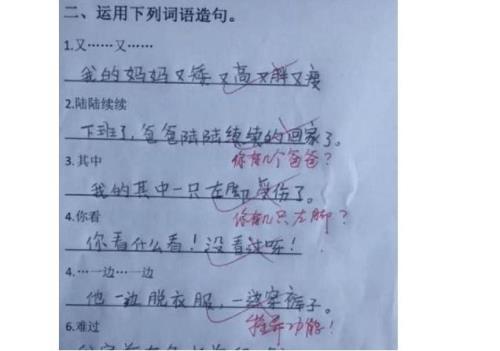 二、运用下列词语造句。
1.又……又……
我的妈妈又矮又高又胖又瘦
2.陆陆续续
下班了,爸爸陆陆续续的回家了。
你有几个爸爸?
3.其中
我的其中一只左脚受伤了。
你有几只左脚?
4.你看
你看什么看!没看过呀!
4.…一边…一边
他一边脱衣服,一边穿裤子。
特异功能!
6.难过